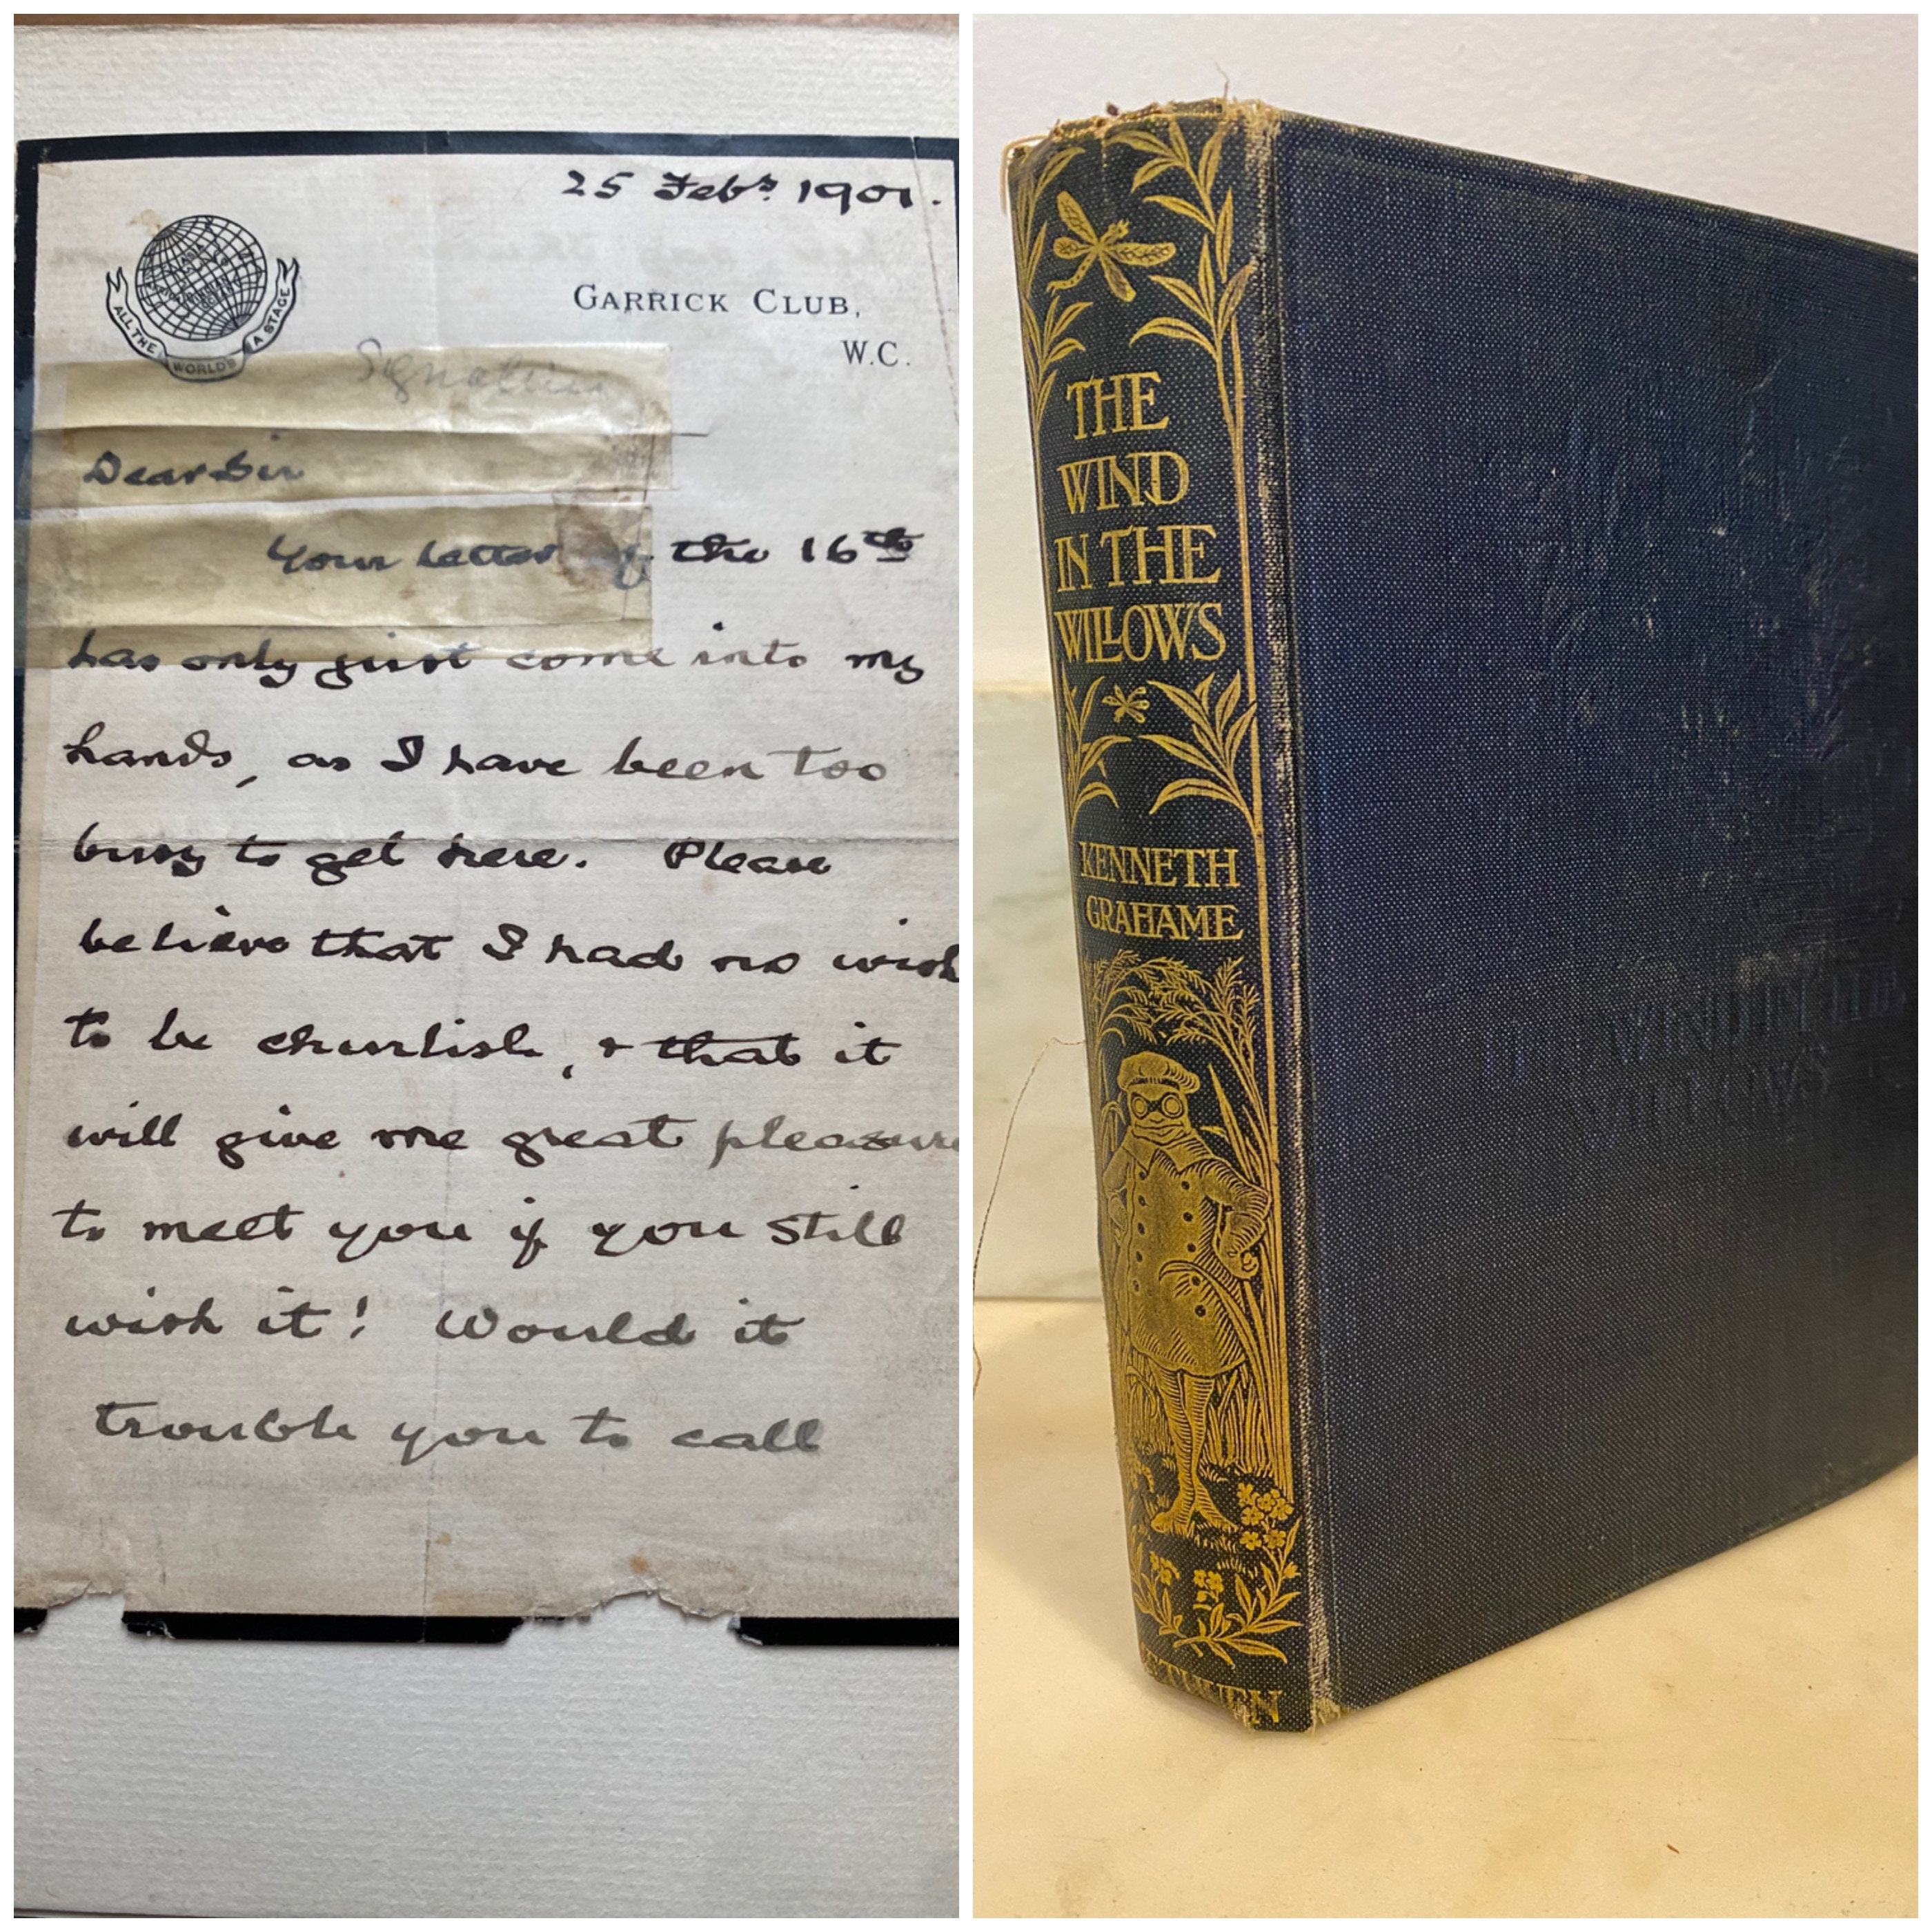 25 Feby. 1901.
ALL THE WORLD'S A STAGE
GARRICK CLUB,
W.C.
Signature
Dear Sir
Your letter of the 16th
has only just come into my
hands, as I have been too
busy to get here. Please
believe that I had no wish
to be churlish, & that it
will give me great pleasure
to meet you if you still
wish it! Would it
trouble you to call
THE
WIND
IN THE
WILLOWS
KENNETH
GRAHAME
METHUEN
WIND IN THE
WILLOWS